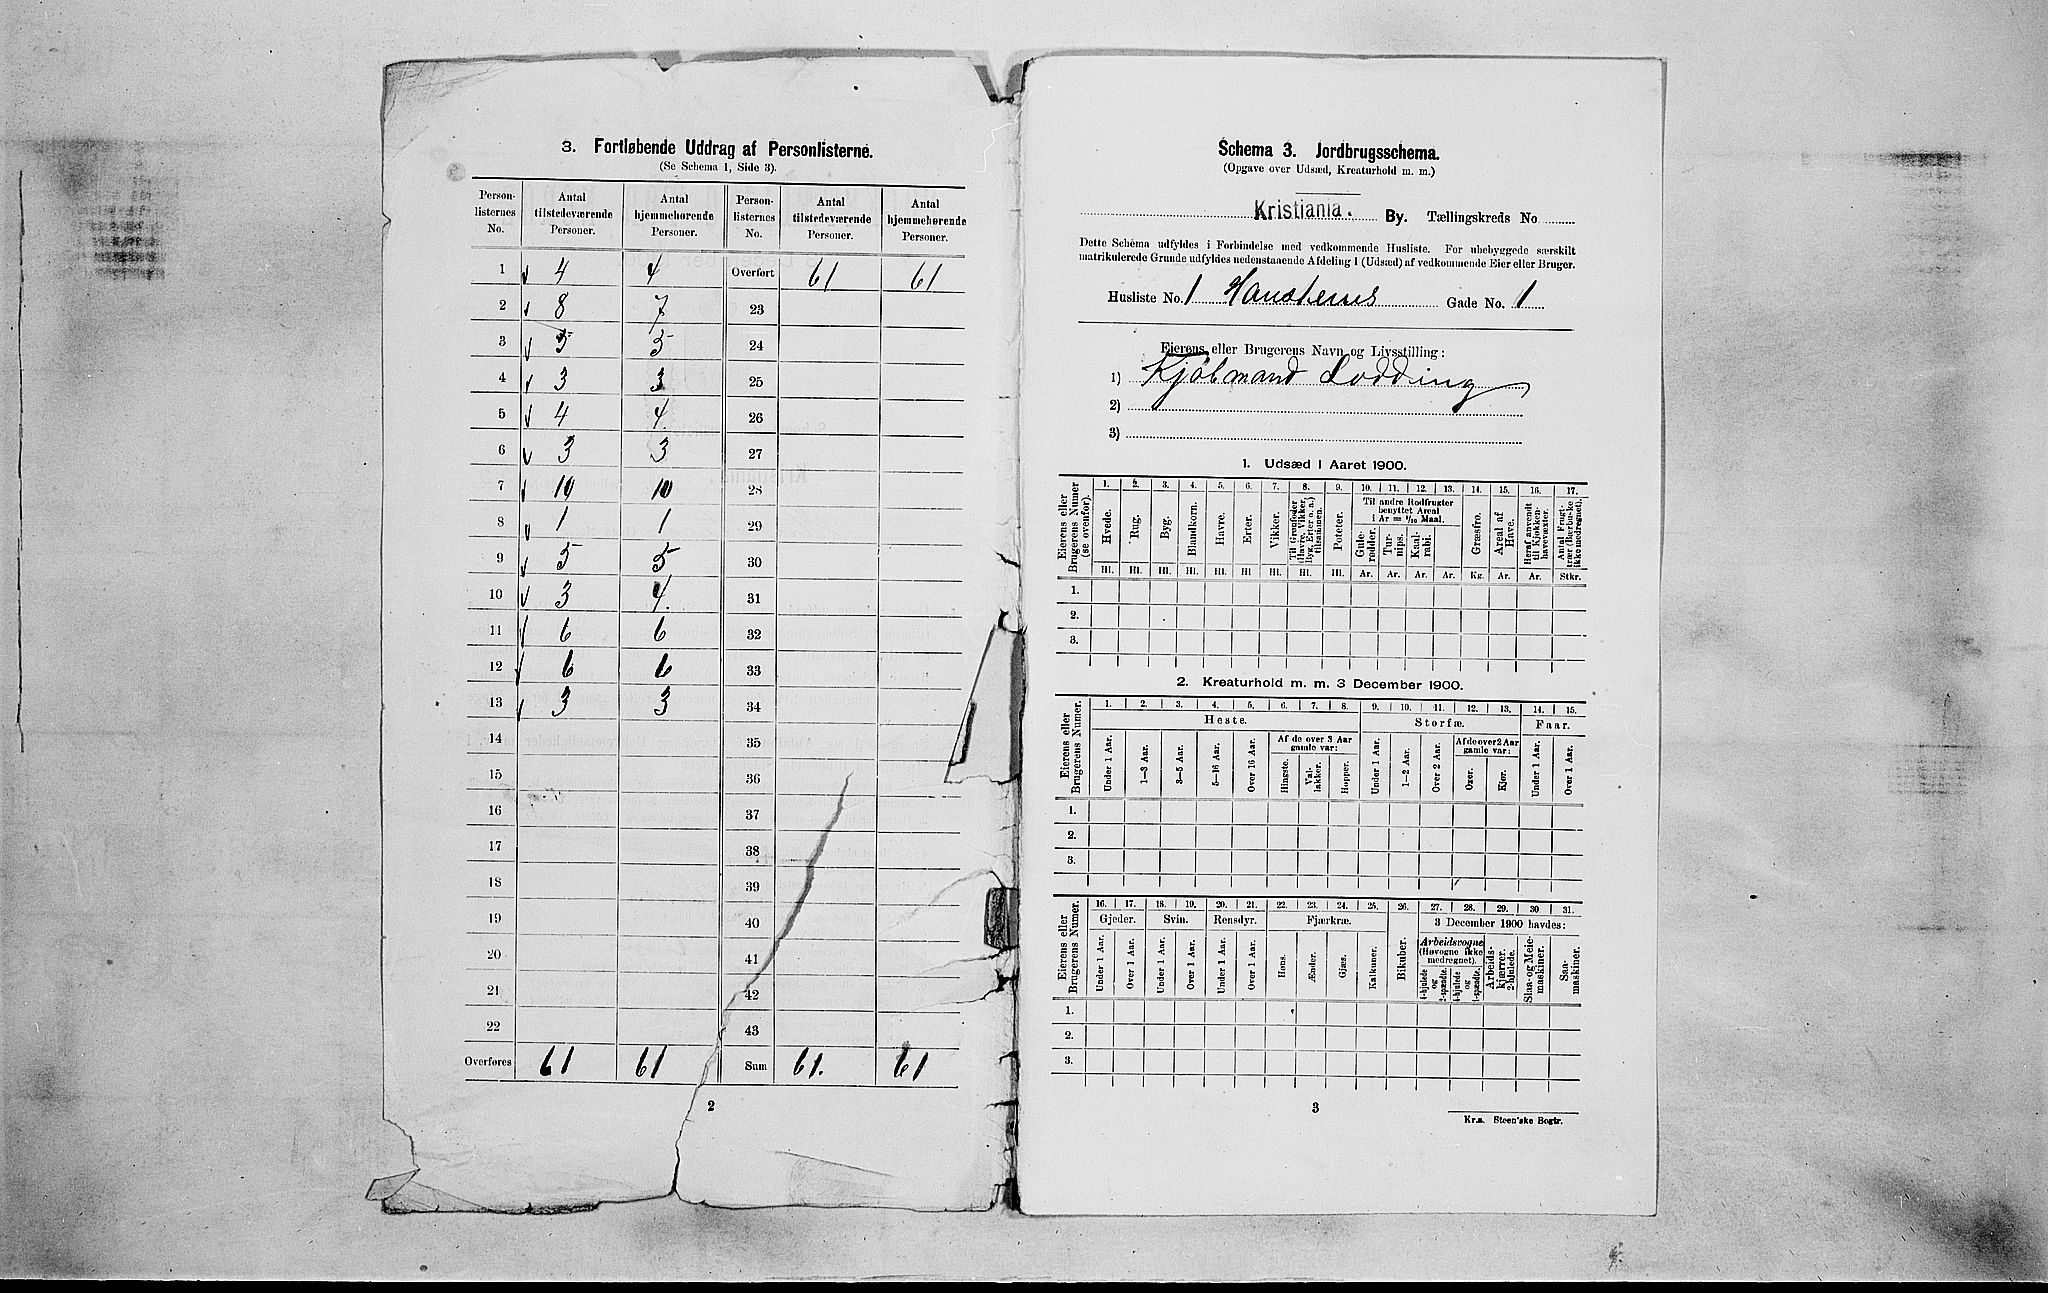 3. Fortløbende Uddrag af Personlisterne.
(Se Schema 1, Side 3).
Person-listernes No. | Antal tilstedeværende Personer. | Antal hjemmehørende Personer. | Person-listernes No. | Antal tilstedeværende Personer. | Antal hjemmehørende Personer.
1 4 4 Overført 61 61
2 8 7 23
3 5 5 24
4 3 3 25
5 4 4. 26
6 3 3 27
7 10 10 28
8 1 1 29
9 5 5 30
10 3 4. 31
11 6 6 32
12 6 6 33
13 3 3 34
14 35
15 36
16 37
17 38
18 39
19 40
20 41
21 42
22 43
Overføres 61 61 Sum 61. 61
2
Schema 3. Jordbrugsschema.
(Opgave over Udsæd, Kreaturhold m. m.)
Kristiania. By. Tællingskreds No
Dette Schema udfyldes i Forbindelse med vedkommende Husliste. For ubebyggede særskilt
matrikulerede Grunde udfyldes nedenstaaende Afdeling 1 (Udsæd) af vedkommende Eier eller Bruger.
Husliste No. 1 Hausteens Gade No. 1
Eierens eller Brugerens Navn og Livsstilling:
1) Kjøbmand Lodding
2)
3)
1. Udsæd i Aaret 1900.
Eierens eller Brugerens Numer (se ovenfor).
1. 2. 3. 4. 5. 6. 7. 8. 9. 10. 11. 12. 13. 14. 15. 16. 17.
Til andre Rodfrugter benyttet Areal i Ar = 1/10 Maal.
Hvede. Rug. Byg. Blandkorn. Havre. Erter. Vikker. Til Grønfoder (Havre, Vikker, Byg, Erter o. a.) tilsammen. Poteter. Gulerødder. Turnips. Kaalrabi. Græsfrø. Areal af Have. Heraf anvendt til Kjøkkenhavevæxter. Antal Frugttrær (Bærbuske ikke medregnet).
Hl. Hl. Hl. Hl. Hl. Hl. Hl. Hl. Hl. Ar. Ar. Ar. Ar. Kg. Ar. Ar. Stkr.
1.
2.
3.
2. Kreaturhold m. m. 3 December 1900.
Eierens eller Brugerens Numer.
1. 2. 3. 4. 5. 6. 7. 8. 9. 10. 11. 12. 13. 14. 15.
Heste. Storfæ. Faar.
Af de over 3 Aar gamle var: Af de over 2 Aar gamle var:
Under 1 Aar. 1—3 Aar. 3—5 Aar. 5—16 Aar. Over 16 Aar. Hingste. Vallakker. Hopper. Under 1 Aar. 1—2 Aar. Over 2 Aar. Oxer. Kjør. Under 1 Aar. Over 1 Aar.
1.
2.
3.
Eierens eller Brugerens Numer.
16. 17. 18. 19. 20. 21. 22. 23. 24. 25. 26. 27. 28. 29. 30. 31.
Gjeder. Svin. Rensdyr. Fjærkræ. 3 December 1900 havdes:
Arbeidsvogne (Høvogne ikke medregnet).
Under 1 Aar. Over 1 Aar. Under 1 Aar. Over 1 Aar. Under 1 Aar. Over 1 Aar. Høns. Ænder. Gjæs. Kalkuner. Bikuber. 4-hjulede og 2-spændte. 4-hjulede og 1-spændte. Arbeidskjærrer, 2-hjulede. Slaa- og Meiemaskiner. Saamaskiner.
1.
2.
3.
3
Kr.a. Steen'ske Bogtr.